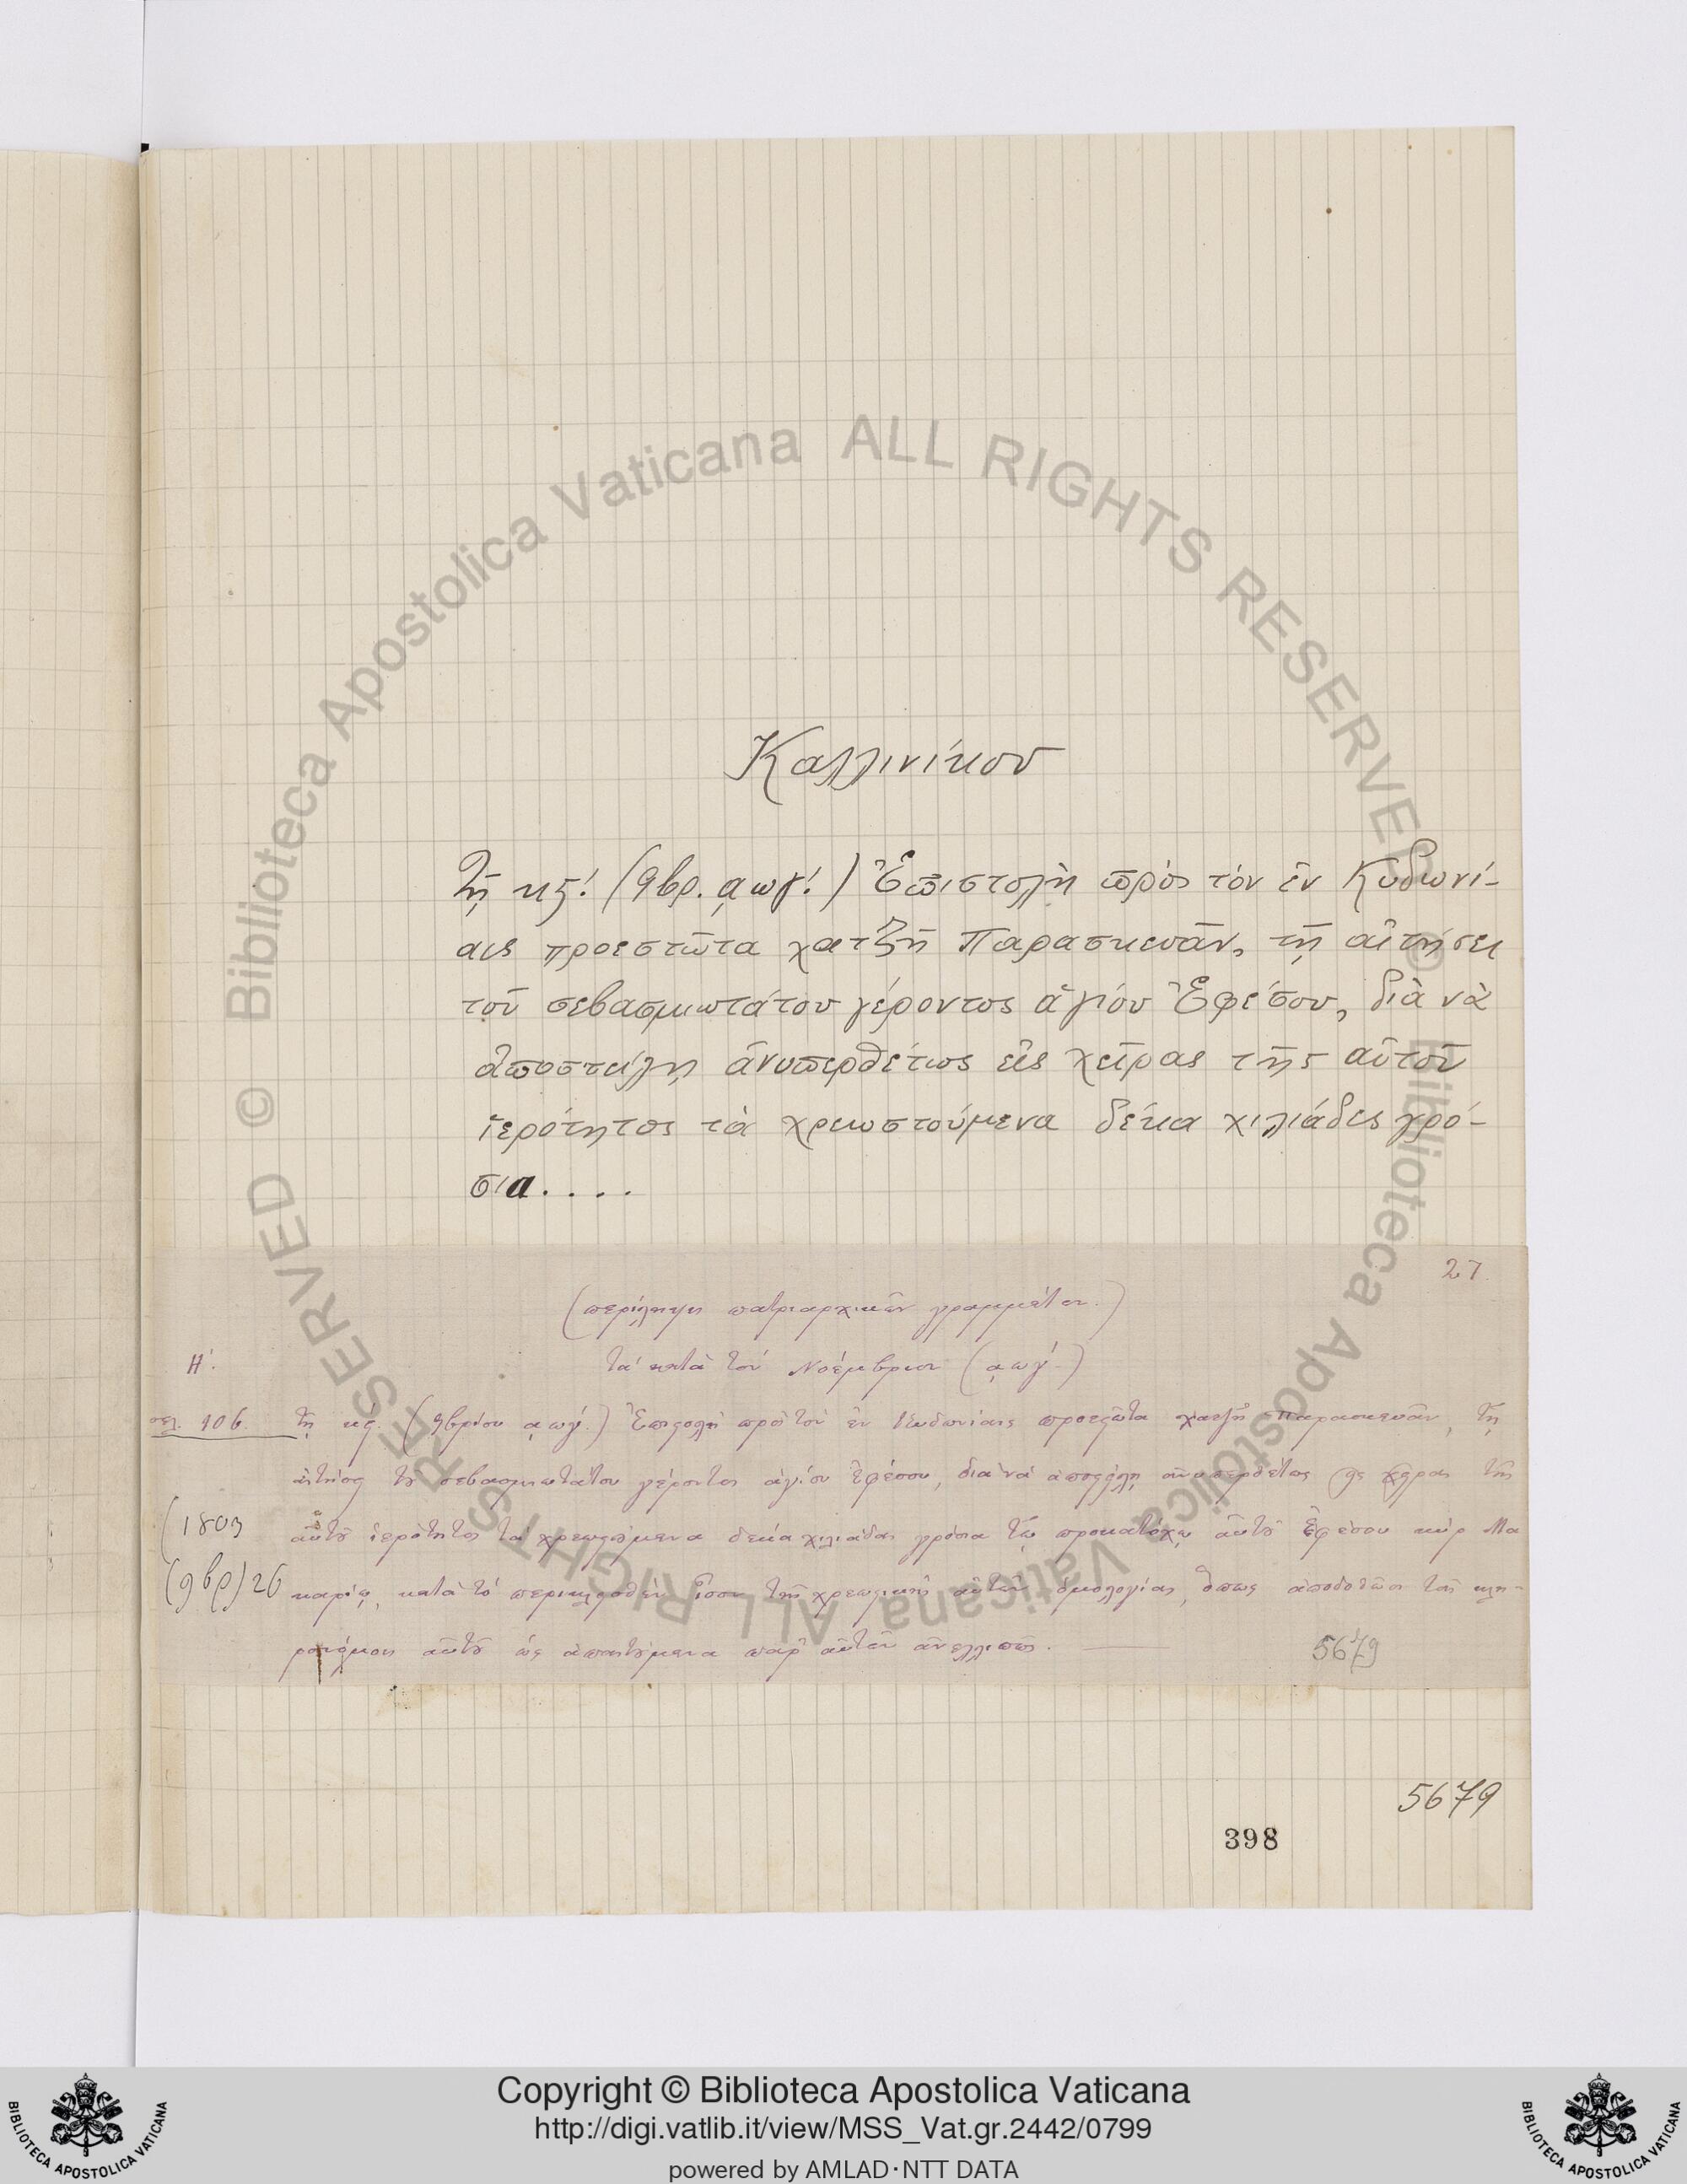 Καλλινίκου
Τῇ κϛ! (9βρ. ͵αωγ!) Ἐπιστολὴ πρὸς τὸν ἐν Κυδωνί-
αις προεστῶτα χατζῆ Παρασκευᾶν, τῇ αἰτήσει
τοῦ σεβασμιωτάτου γέροντος ἁγίου Ἐφέσου, διὰ νὰ
ἀποστείλῃ ἀνυπερθέτως εἰς χεῖρας τῆς αὐτοῦ
ἱερότητος τὰ χρεωστούμενα δέκα χιλιάδες γρό-
σια....
27.
(περίληψις πατριαρχικῶν γραμμάτων.)
Η΄. τὰ κατὰ τὸν Νοέμβριον (͵αωγ΄.)
σελ. 106. τῇ κϛ. (9βρίου ͵αωγ΄.) Ἐπιστολὴ πρὸς τὸν ἐν Κυδωνίαις προεστῶτα χατζῆ Παρασκευᾶν, τῇ
αἰτήσει τοῦ σεβασμιωτάτου γέροντος ἁγίου Ἐφέσου, διὰ νὰ ἀποστείλῃ ἀνυπερθέτως εἰς χεῖρας τῆς
(1803 αὐτοῦ ἱερότητος τὰ χρεωστούμενα δέκα χιλιάδας γρόσια τῷ προκατόχῳ αὐτοῦ Ἐφέσου κὺρ Μα
(9βρ) 26 καρίῳ, κατὰ τὸ περικλεισθὲν ἶσον τῆς χρεωστικῆς αὐτῶν ὁμολογίας, ὅπως ἀποδοθῶσι τοῖς κλη-
ρονόμοις αὐτοῦ ὡς ἀπαιτούμενα παρ' αὐτῶν ἀνελλιπῶς.
5679
5679
398
© Biblioteca Apostolica Vaticana ALL RIGHTS RESERVED
© Biblioteca Apostolica Vaticana ALL RIGHTS RESERVED
Copyright © Biblioteca Apostolica Vaticana
http://digi.vatlib.it/view/MSS_Vat.gr.2442/0799
powered by AMLAD·NTT DATA
BIBLIOTECA APOSTOLICA VATICANA
BIBLIOTECA APOSTOLICA VATICANA